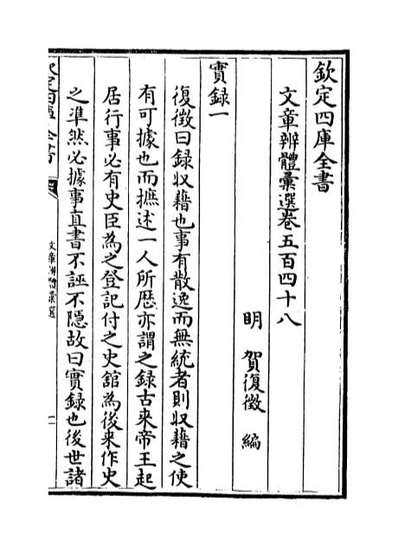 欽定四庫全書
文章辨體彙選卷五百四十八
明 賀復徵 編
實録一
復徵曰録収藉也事有散逸而無統者則収藉之使
有可據也而摭述一人所歴亦謂之録古来帝王起
居行事必有史臣為之登記付之史舘為後来作史
之凖然必據事直書不誣不隠故曰實録也後世諸
欽定四庫全書
文章辨體彙選
一